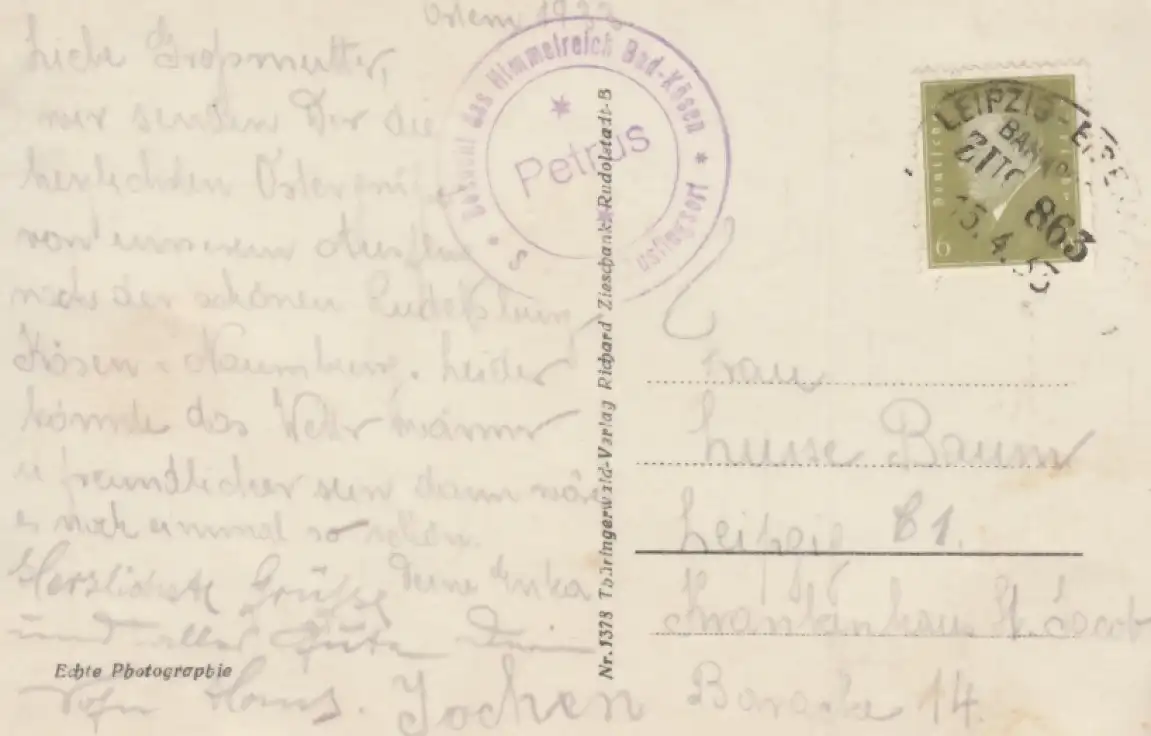 Ostern 1933.
Liebe Großmutter,
wir senden Dir die
herzlichsten Ostergrüße
von unserem Ausflug
nach der schönen Rudelsburg,
Kösen, Naumburg. Leider
könnte das Wetter wärmer
u freundlicher sein dann wäre
es noch einmal so schön.
Herzlichste Grüße Deine
und alles Gute Dein
Sohn Hans. Jochen
Echte Photographie
Besucht das Himmelreich Bad-Kösen
Petrus
Nr. 1378 Thüringerwald-Verlag Richard Zieschank-Rudolstadt-B
Deutsches
6
LEIPZIG-
BAHNPOST
ZUG 863
15.4.33
Frau
Luise Baum
Leipzig C1.
Krankenhaus St. Jacob
Baracke 14.